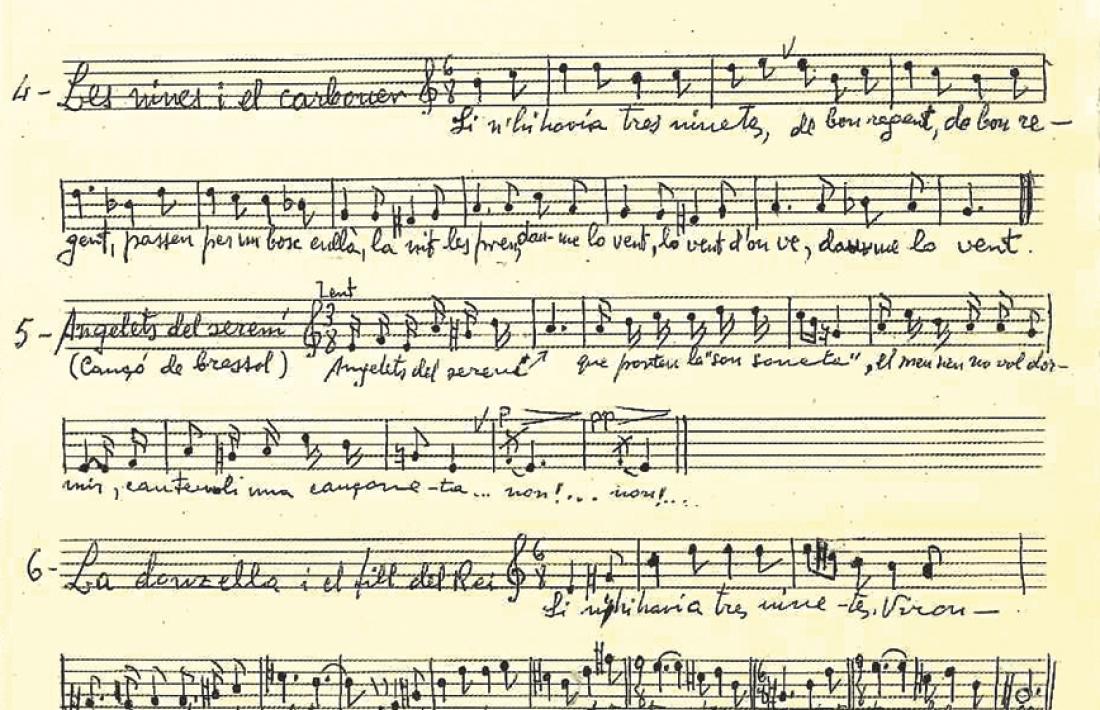 4- Les nines i el carboner 6 8
Si n'hi havia tres ninetes, de bon regent, de bon re-
gent, passen per un bosc enllà, la nit les pren, dau-me lo vent, lo vent d'on ve, dau-me lo vent.
Lent
5- Angelets del serení 3 8
(Cançó de bressol) Angelets del serení que porten la "son soneta", el meu nen no vol dor-
p pp
mir, canteu-li una cançone-ta... non!... non!...
6- La donzella i el fill del Rei 6 8
Si n'hi havia tres nine-tes. Viron-